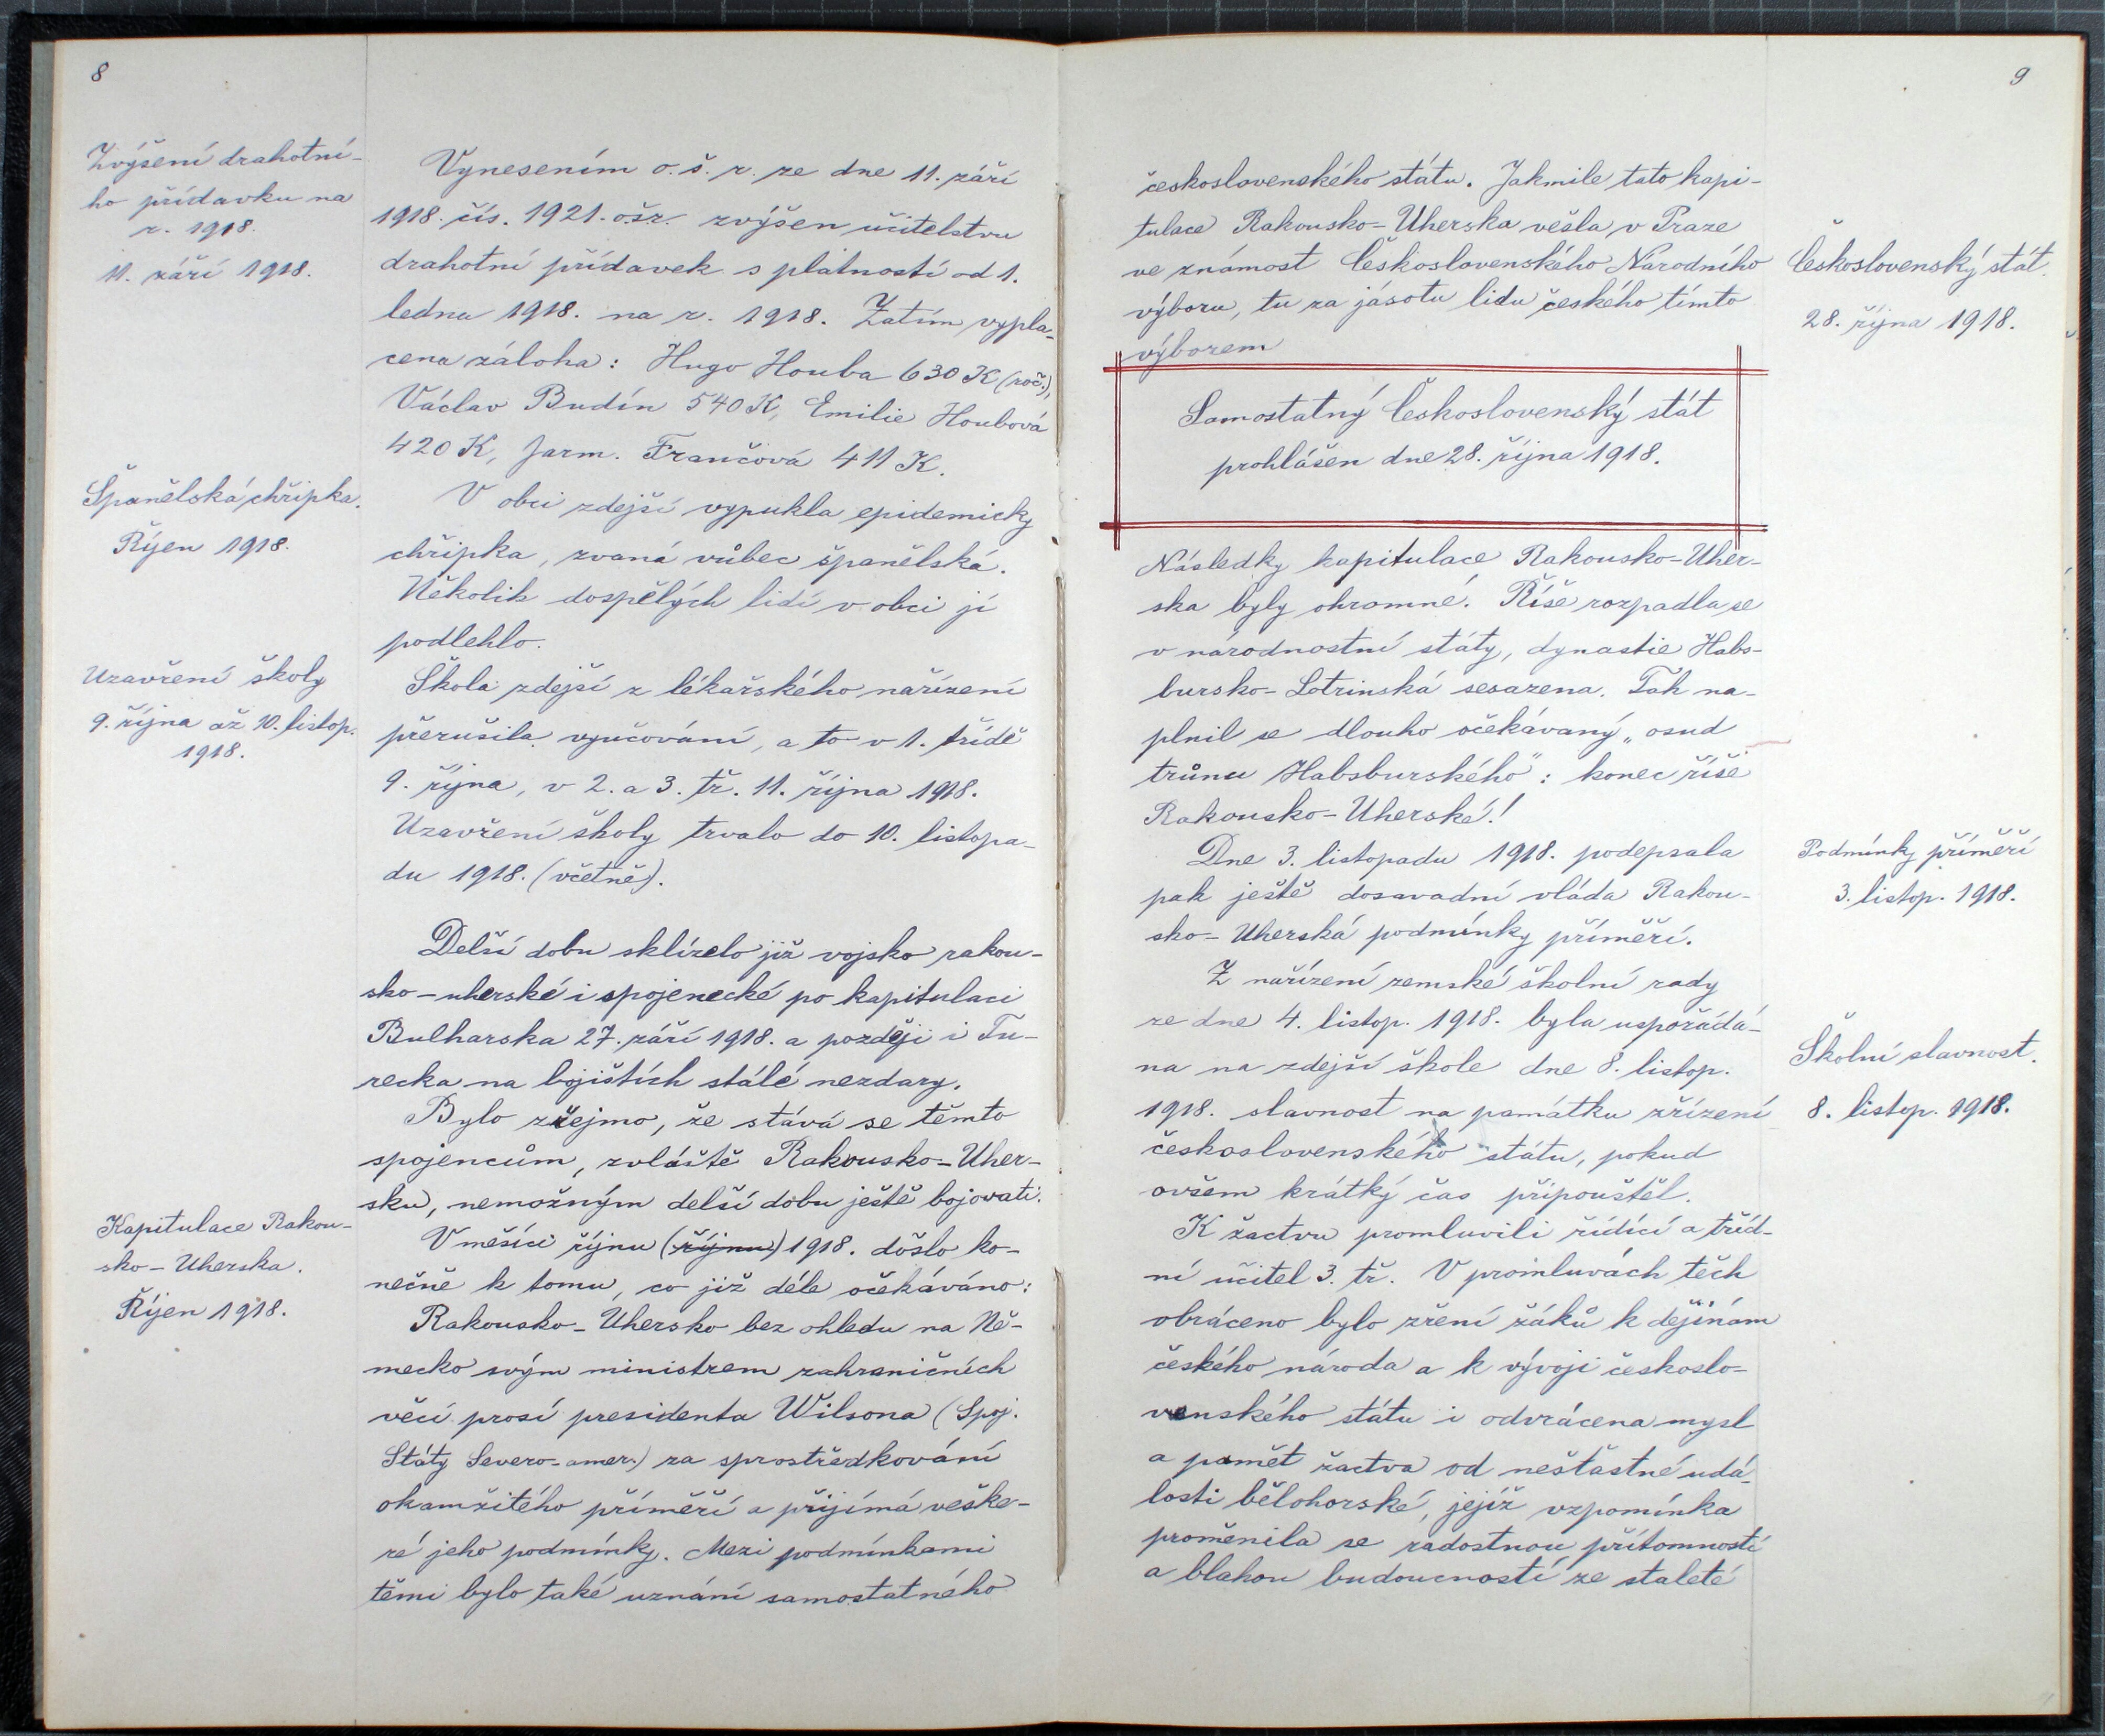 8
Zvýšení drahotní-
ho přídavku na
r. 1918.
11. září 1918.
Vynesením o. š. r. ze dne 11. září
1918. čís. 1921. ošr. zvýšen učitelstvu
drahotní přídavek s platností od 1.
ledna 1918. na r. 1918. Zatím vypla-
cena záloha: Hugo Houba 630 K (roč.),
Václav Budín 540 K, Emilie Houbová
420 K, Jarm. Frančová 411 K.
Španělská chřipka.
Říjen 1918.
V obci zdejší vypukla epidemicky
chřipka, zvaná vůbec španělská.
Několik dospělých lidí v obci jí
podlehlo.
Uzavření školy
9. října až 10. listop.
1918.
Škola zdejší z lékařského nařízení
přerušila vyučování, a to v 1. třídě
9. října, v 2. a 3. tř. 11. října 1918.
Uzavření školy trvalo do 10. listopa-
du 1918. (včetně).
Delší dobu sklízelo již vojsko rakou-
sko-uherské i spojenecké po kapitulaci
Bulharska 27. září 1918. a později i Tu-
recka na bojištích stálé nezdary.
Bylo zřejmo, že stává se těmto
spojencům, zvláště Rakousko-Uher-
sku, nemožným delší dobu ještě bojovati.
Kapitulace Rakou-
sko-Uherska.
Říjen 1918.
V měsíci říjnu (říjnu) 1918. došlo ko-
nečně k tomu, co již déle očekáváno:
Rakousko-Uhersko bez ohledu na Ně-
mecko svým ministrem zahraničních
věcí prosí presidenta Wilsona (Spoj.
Státy Severo-amer.) za sprostředkování
okamžitého příměří a přijímá veške-
ré jeho podmínky. Mezi podmínkami
těmi bylo také uznání samostatného
9
československého státu. Jakmile tato kapi-
tulace Rakousko-Uherska vešla v Praze
ve známost Československého Národního
výboru, tu za jásotu lidu českého tímto
výborem
Československý stát.
28. října 1918.
Samostatný Československý stát
prohlášen dne 28. října 1918.
Následky kapitulace Rakousko-Uher-
ska byly ohromné. Říše rozpadla se
v národnostní státy, dynastie Habs-
bursko-Lotrinská sesazena. Tak na-
plnil se dlouho očekávaný „osud
trůnu Habsburského": konec říše
Rakousko-Uherské!
Dne 3. listopadu 1918. podepsala
pak ještě dosavadní vláda Rakou-
sko-Uherská podmínky příměří.
Podmínky příměří
3. listop. 1918.
Z nařízení zemské školní rady
ze dne 4. listop. 1918. byla uspořádá-
na na zdejší škole dne 8. listop.
1918. slavnost na památku zřízení
československého státu, pokud
ovšem krátký čas připouštěl.
Školní slavnost.
8. listop. 1918.
K žactvu promluvili řídící a tříd-
ní učitel 3. tř. V promluvách těch
obráceno bylo zření žáků k dějinám
českého národa a k vývoji českoslo-
venského státu i odvrácena mysl
a pamět žactva od nešťastné udá-
losti bělohorské, jejíž vzpomínka
proměnila se radostnou přítomností
a blahou budoucností ze staleté